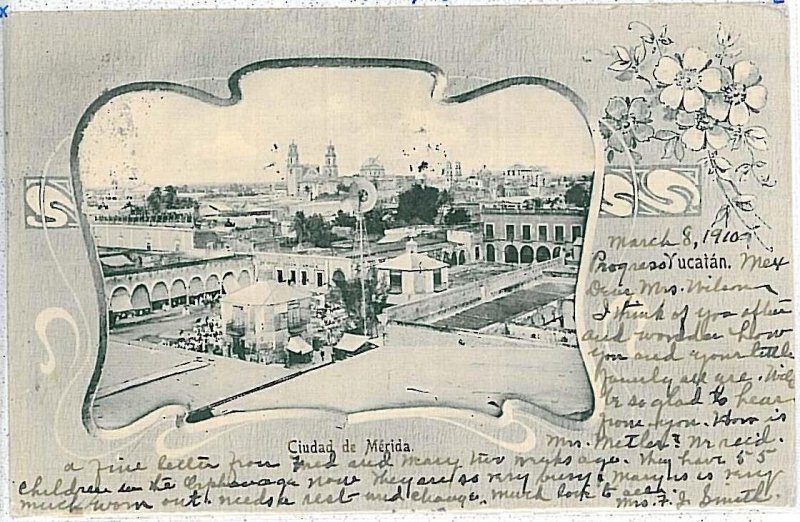 March 8, 1910
Progreso Yucatán. Mex
Dear Mrs. Wilson
I think of you often
and wonder how
you and your little
family all are. Will
be so glad to hear
from you. How is
Ciudad de Mérida.
Mrs. Metler? We recd.
a fine letter from Fred and Mary two weeks ago. They have 55
children in the Orphanage now they are so very busy & Mary is is very
much worn out. needs a rest and change. Much love to all.
Mrs. F. J. Smith